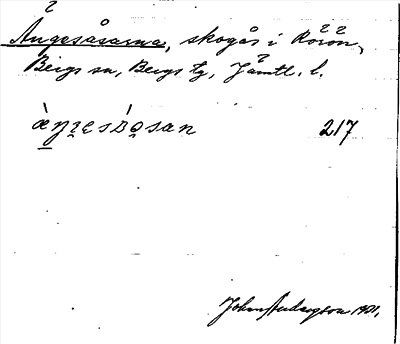 Ångesåsarna, skogås i Rörön,
Bergs sn, Bergs tg, Jämtl. l.
217
John Anderszon 1901.